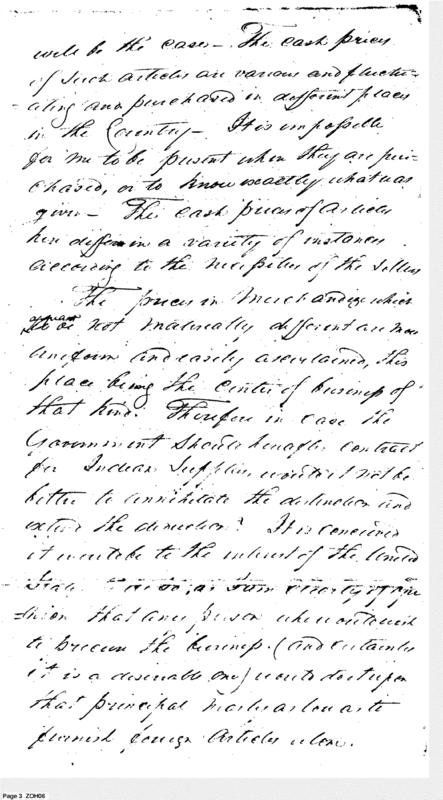 will be the case – The cash prices
of such articles are various and fluctu-
ating and purchased in different places
in the Country – It is impossible
for me to be present when they are pur-
chased, or to know exactly what was
given – The cash prices of articles
here differ in a variety of instances
according to the necessities of the Sellers
The prices in Merchandize which
appear
not materially different are more
uniform and easily ascertained, this
place being the center of business of
that kind. Therefore in case the
Government should hereafter contract
for Indian Supplies, would it not be
better to annihilate the distinction and
extend the direction? It is conceived
it would be to the interest of the United
State so, as I am clearly of opi-
nion that any person who would wish
to procure the business (and certainly
it is a desirable one) would do it upon
that principal
furnish foreign Articles alone.
Page 3 ZOH06